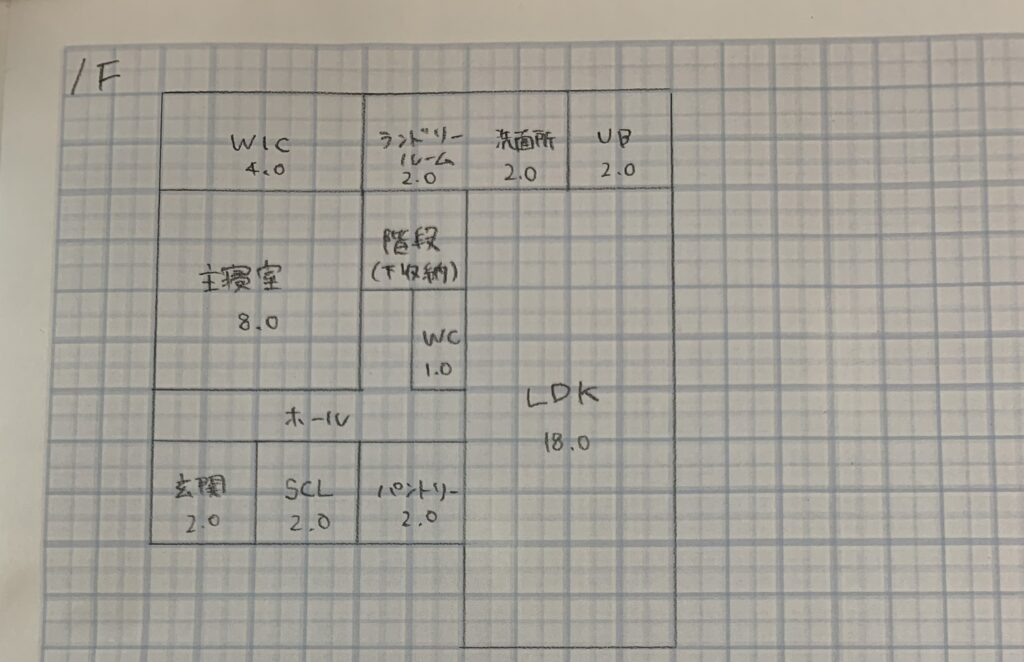 1F
WIC
4.0
ランドリー
ルーム
2.0
洗面所
2.0
UB
2.0
主寝室
8.0
階段
(下収納)
WC
1.0
LDK
18.0
ホール
玄関
2.0
SCL
2.0
パントリー
2.0